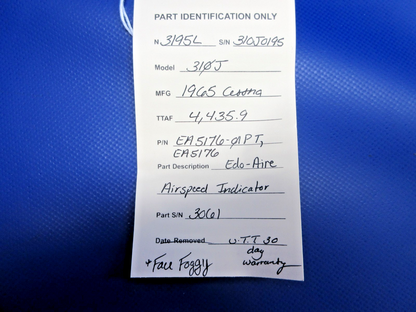 PART IDENTIFICATION ONLY
N 3195L S/N 310J0195
Model 310J
MFG 1965 Cessna
TTAF 4,435.9
P/N EA5176-01PT,
EA5176
Part Description Edo-Aire
Airspeed Indicator
Part S/N 3061
Date Removed U.T.T 30
day
*Face Foggy warranty